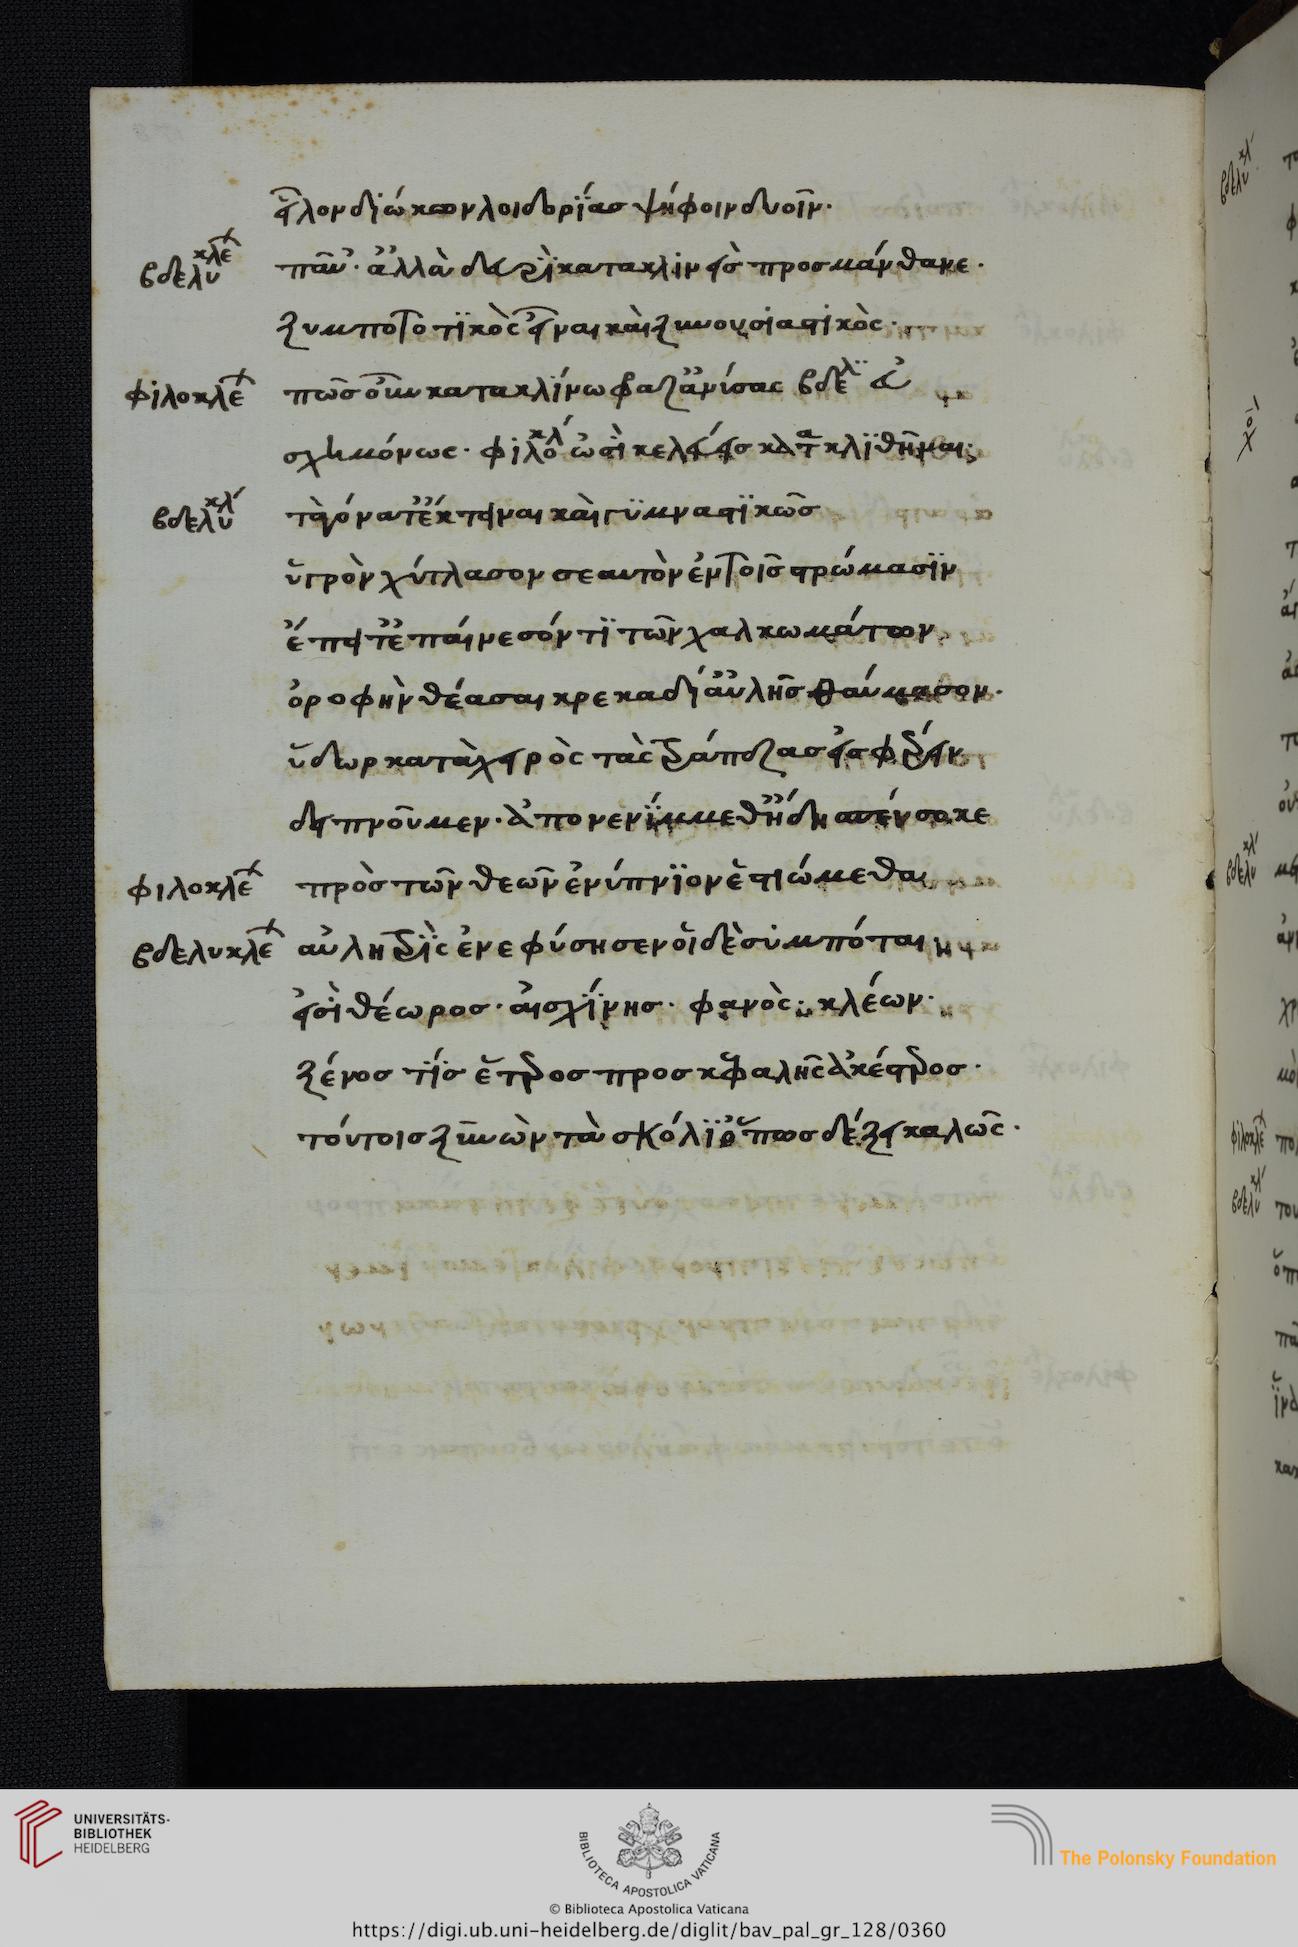 εἷλον διώκων λοιδορίας ψήφοιν δυοῖν·
βδελυκλέ παῦ'· ἀλλὰ δευρὶ κατακλινεὶς προσμάνθανε·
ξυμποτοτικὸς εἶναι καὶ ξυνουσιαστικὸς·
φιλοκλέ πῶς οὖν κατακλίνω φραζ' ἀνύσας βδελ εὐ
σχημόνως· φιλοκλ ὡδὶ κελεύεις κατακλιθῆναι;
βδελυκλ τὰ γόνατ' ἔκτεινε καὶ γυμναστικῶς
ὑγρὸν χύτλασον σεαυτὸν ἐν τοῖς στρώμασιν
ἔπειτ' ἐπαίνεσόν τι τῶν χαλκωμάτων
ὀροφὴν θέασαι κρεκάδι' αὐλῆς θαύμασον·
ὕδωρ κατὰ χειρὸς τὰς τραπέζας εἰσφέρειν
δειπνοῦμεν· ἀπονενίμμεθ' ἤδη
φιλοκλέ πρὸς τῶν θεῶν ἐνύπνιον ἑστιώμεθα
βδελυκλέ αὐλητρὶς ἐνεφύσησεν οἱ δὲ συμπόται
εἰσὶ θέωρος· αἰσχίνης· φανὸς· κλέων·
ξένος τίς ἕτερος προσκεφαλῆς ἀκέστερος·
τούτοις ξυνὼν τὰ σκόλι' ὅπως δέξει καλῶς·
UNIVERSITÄTS-
BIBLIOTHEK
HEIDELBERG
BIBLIOTECA APOSTOLICA VATICANA
The Polonsky Foundation
© Biblioteca Apostolica Vaticana
https://digi.ub.uni-heidelberg.de/diglit/bav_pal_gr_128/0360